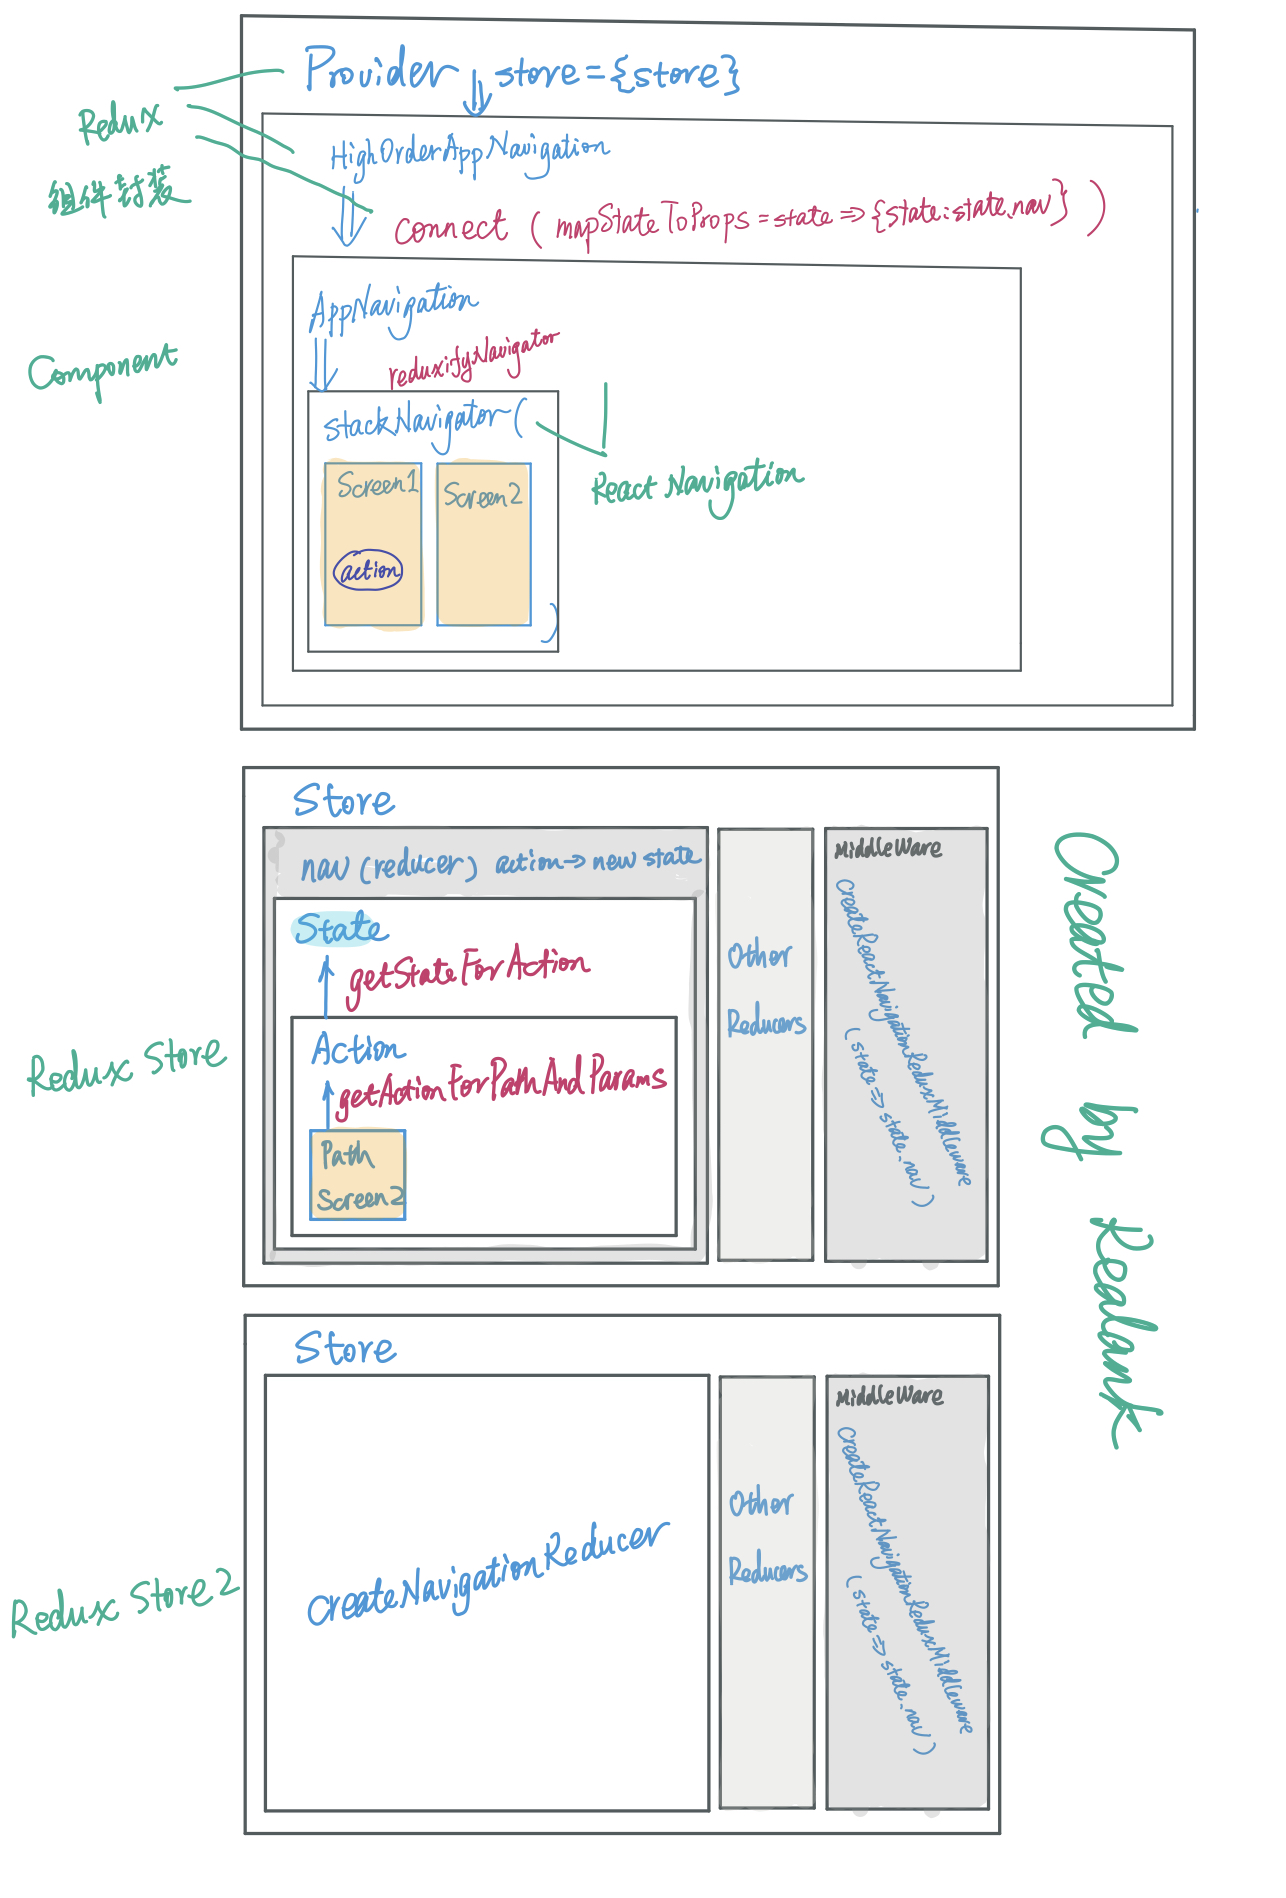 Provider store={store}
Redux
组件封装
HighOrderAppNavigation
Connect ( mapStateToProps = state => {state:state.nav} )
Component
AppNavigation
reduxifyNavigator
StackNavigator(
Screen1
Screen2
action
)
React Navigation
Store
nav (reducer) action => new state
State
getStateForAction
Action
getActionForPathAndParams
Path
Screen2
Other
Reducers
MiddleWare
CreateReactNavigationReduxMiddleware
( state => state.nav )
Redux Store
Created by Realank
Store
CreateNavigationReducer
Other
Reducers
MiddleWare
CreateReactNavigationReduxMiddleware
( state => state.nav )
Redux Store 2